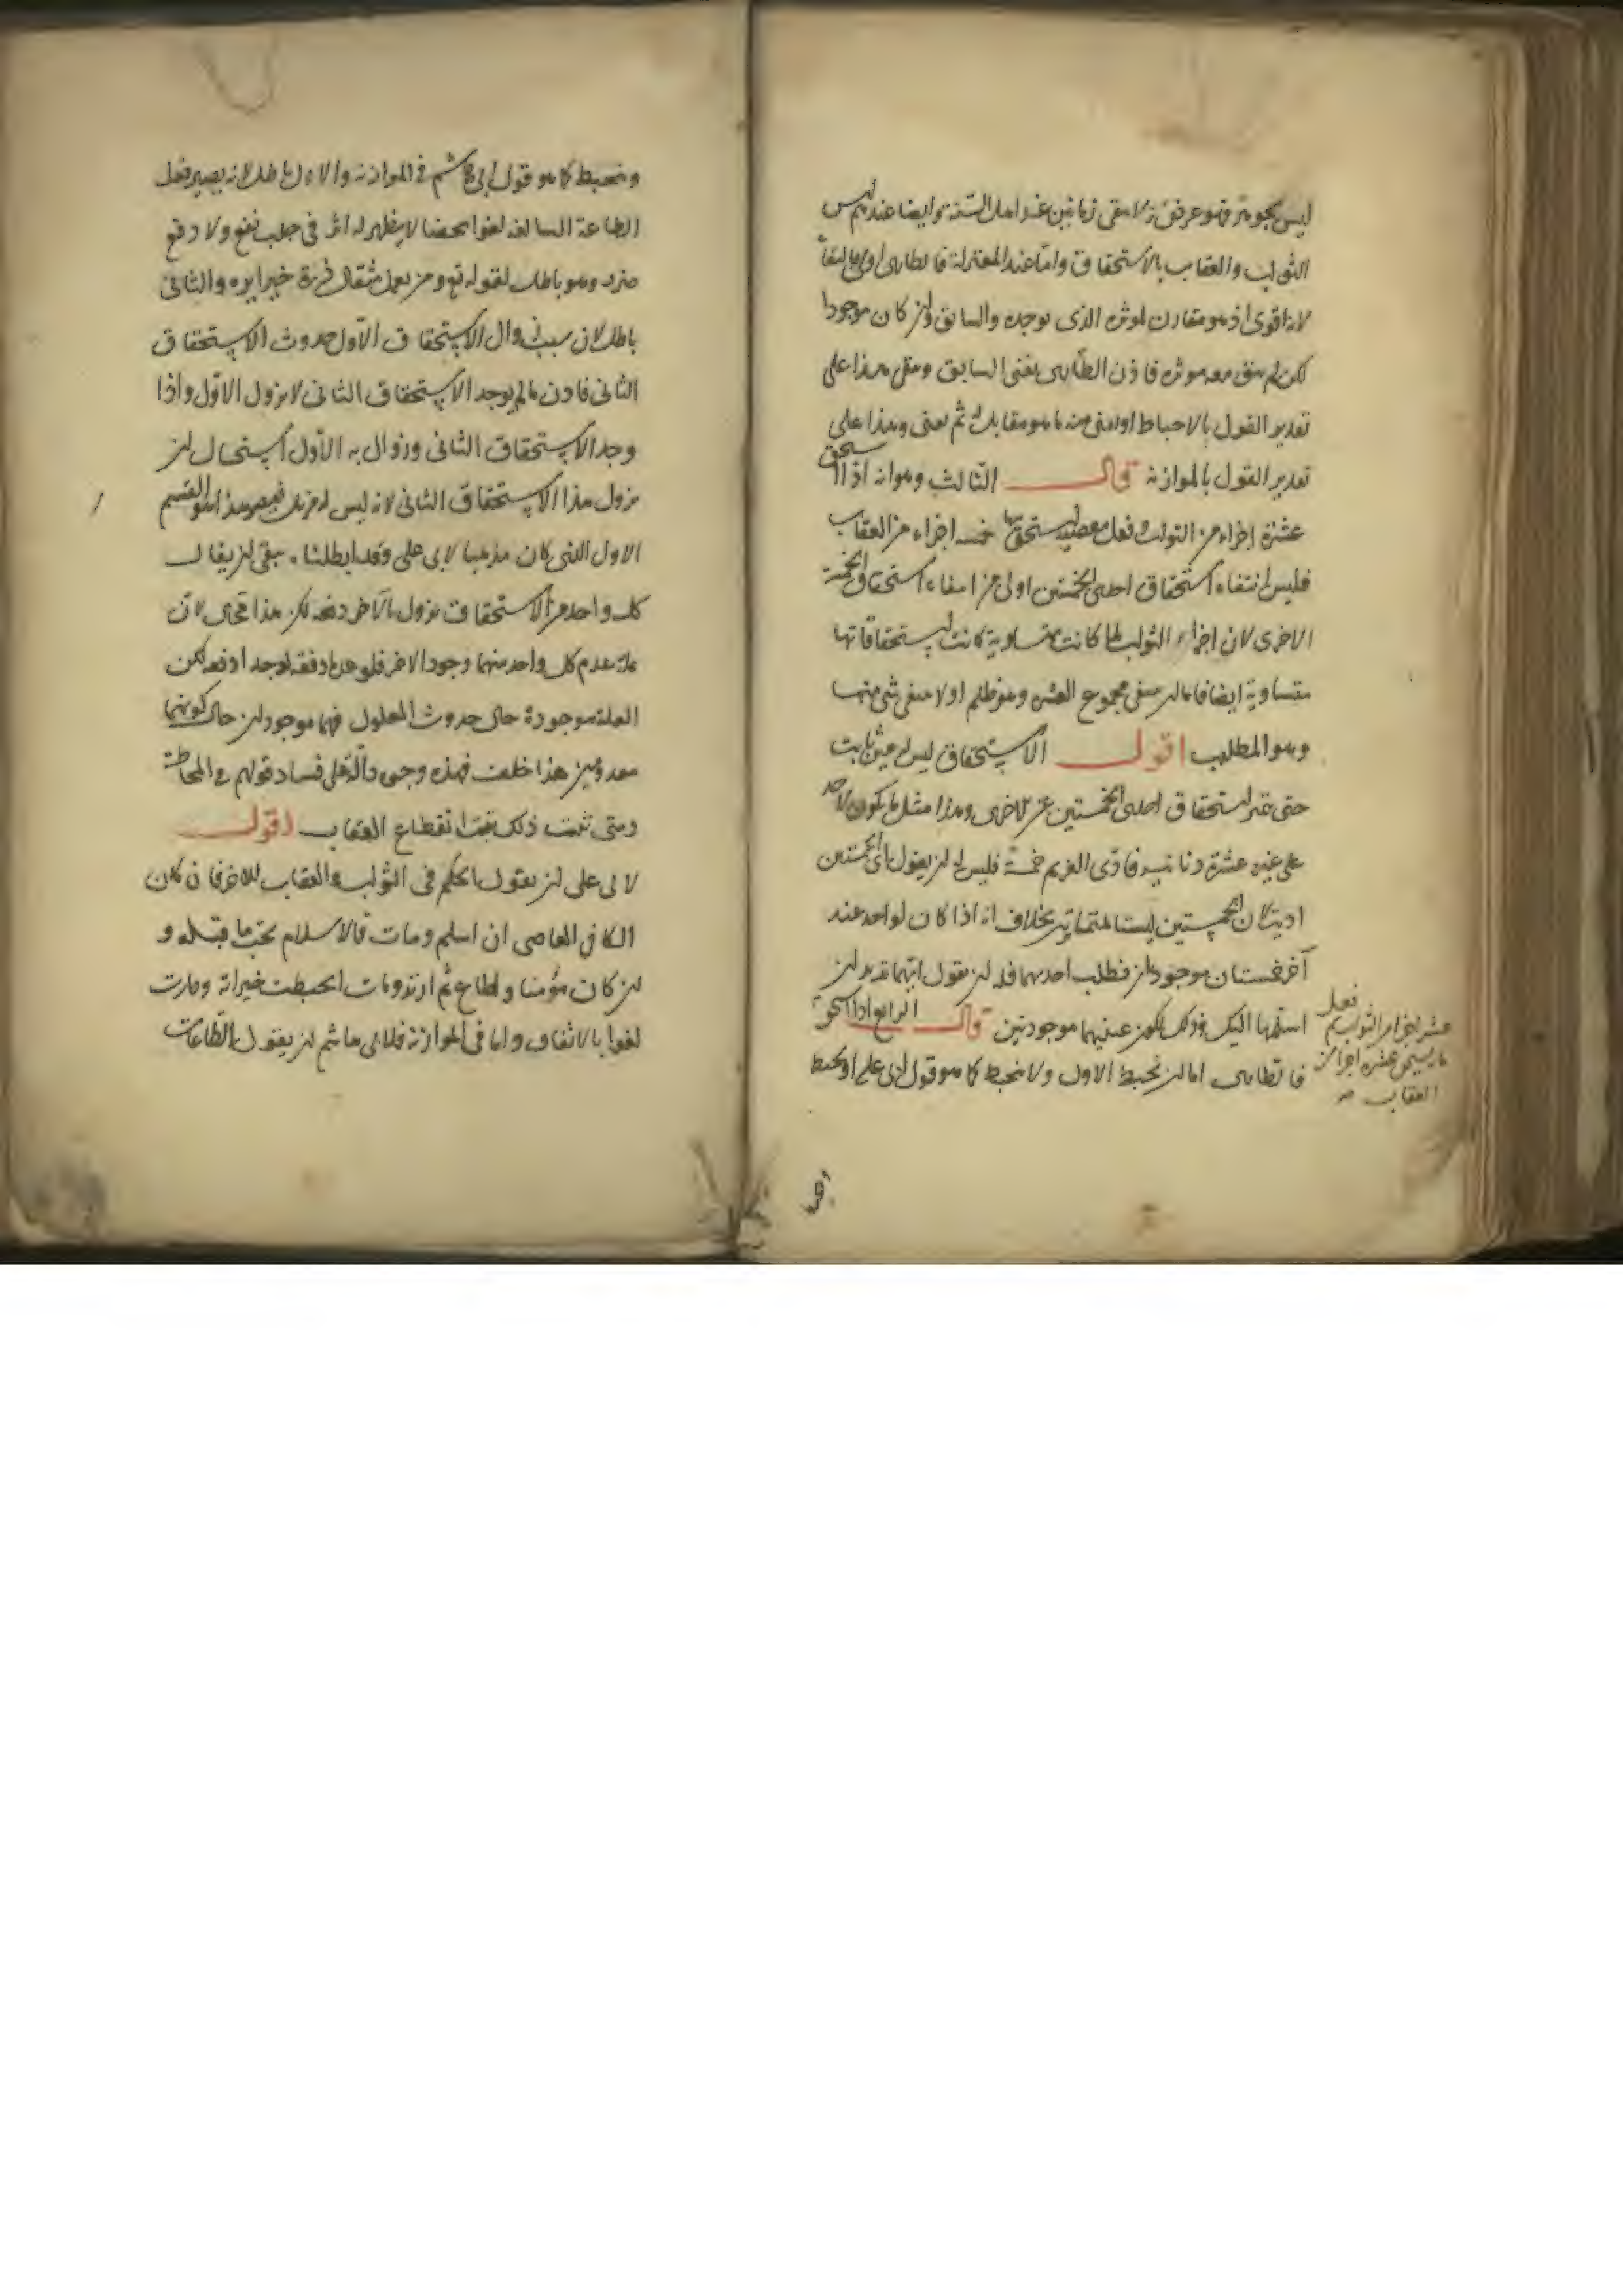 ليس بجوهر فهو عرض لا يبقى زمانين عند اهل السنة وايضا عندهم ليس
الثواب والعقاب بالاستحقاق واما عند المعتزلة فالطارى اولى بالبقاء
لانه اقوى اذ هو مقارن لموثره الذى يوجده والسابق وان كان موجودا
لكن لم يبق معه موثره فاذن الطارى يفنى السابق ويبقى هذا على
تقدير القول بالاحباط او يفنى منه ما هو مقابله ثم يفنى وهذا على
تقدير القول بالموازنة قال الثالث وهو انه اذا استحق
عشرة اجزاء من الثواب فعل معصية يستحق بها خمسه اجزاء من العقاب
فليس انتفاء استحقاق احدى الخمستين اولى من انتفاء استحقاق الخمسة
الاخرى لان اجزاء الثواب لما كانت متساوية كانت استحقاقاتها
متساوية ايضا فاما ان يبقى مجموع العشره وهو ظلم او لا يبقى شى منها
وهو المطلب اقول الاستحقاق ليس له عين ثابت
حتى يتميز استحقاق احدى الخمستين عن الاخرى وهذا مثل ما يكون لاحد
على غيره عشرة دنانير فادى الغريم خمسة فليس له ان يقول اى الخمستين
اديت لان الخمستين ليستا متمايزتين بخلاف انه اذا كان لواحد عند
آخر خمستان موجودتان فطلب احدهما فله ان يقول ايتهما تريد ان
اسلمها اليك وذلك لكون عينيهما موجودتين قال الرابع اذا استحق
فعل
عشرة اجزاء من الثواب ثم
ما يستحق عشره اجزاء من
العقاب صح
فالطارى اما ان يحبط الاول ولا ينحبط كما هو قول ابى على او يحبط
وينحبط كما هو قول ابى هاشم فى الموازنة والاول باطل لانه يصير فعل
الطاعة السالفة لغوا محضا لا يظهر له اثر فى جلب نفع ولا دفع
ضرر وهو باطل لقوله تع ومن يعمل مثقال ذرة خيرا يره والثانى
باطل لان سبب زوال الاستحقاق الاول حدوث الاستحقاق
الثانى فاذن ما لم يوجد الاستحقاق الثانى لا يزول الاول واذا
وجد الاستحقاق الثانى وزوال به الاول استحال ان
يزول هذا الاستحقاق الثانى لانه ليس له مزيل فيصير هذا هو القسم
الاول الذى كان مذهبا لابى على وقد ابطلنا بقى ان يقال
كل واحد من الاستحقاقين يزول بالآخر دفعة لكن هذا محال لان
علة عدم كل واحد منهما وجود الاخر فلو عدما دفعه لوجدا دفعه لكن
العلة موجودة حال حدوث المعلول فهما موجودان حال كونهما
معدومين هذا خلف فهذه وجوه دالة على فساد قولهم فى المحابطة
ومتى ثبت ذلك ثبت انقطاع العقاب اقول
لابى على ان يقول الحكم فى الثواب والعقاب للاخر فان كان
الكافر العاصى ان اسلم ومات فالاسلام يجب ما قبله و
ان كان مؤمنا واطاع ثم ارتد ومات انحبطت خيراته وصارت
لغوا بالاتفاق واما فى الموازنة فلابى هاشم ان يقول الطاعات